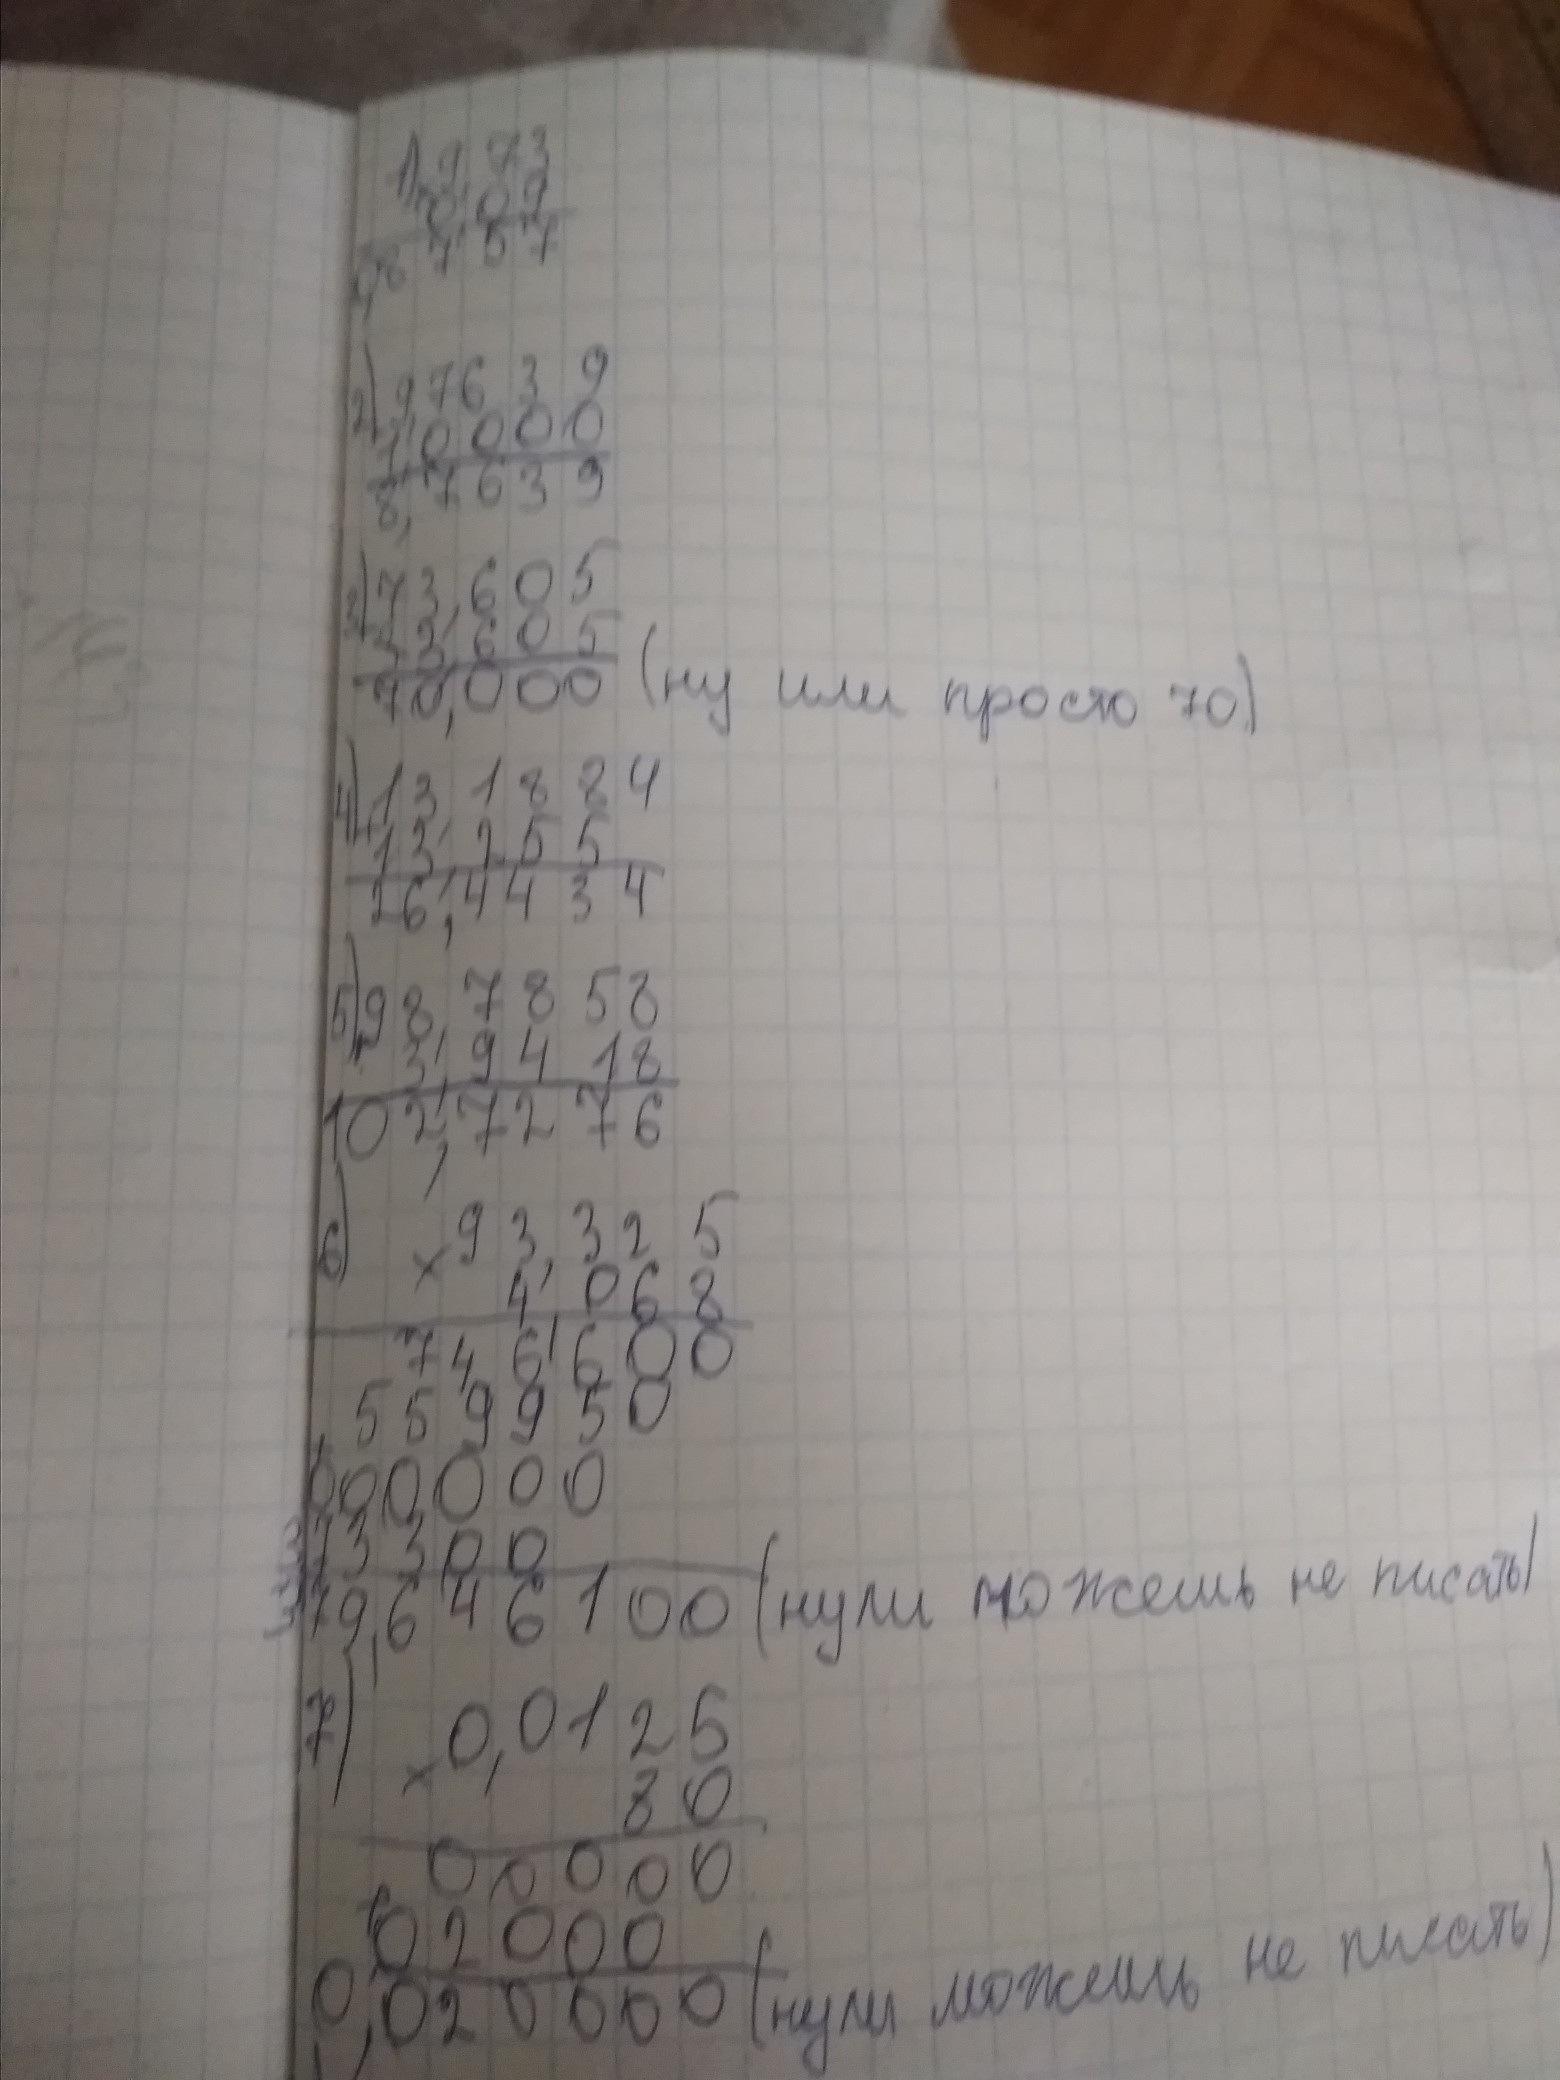 1) 9,73
0,09
0,8757
2) 9,7639
1,0000
8,7639
3) 73,605
3,605
70,000 (ну или просто 70)
4) 13,1884
+ 13,255
26,4434
5) 98,7858
+ 3,9418
102,7276
6) × 93,325
4,068
746600
559950
000000
373300
379,646100 (нули можешь не писать)
7) × 0,0125
80
00000
02000
0,020000 (нули можешь не писать)